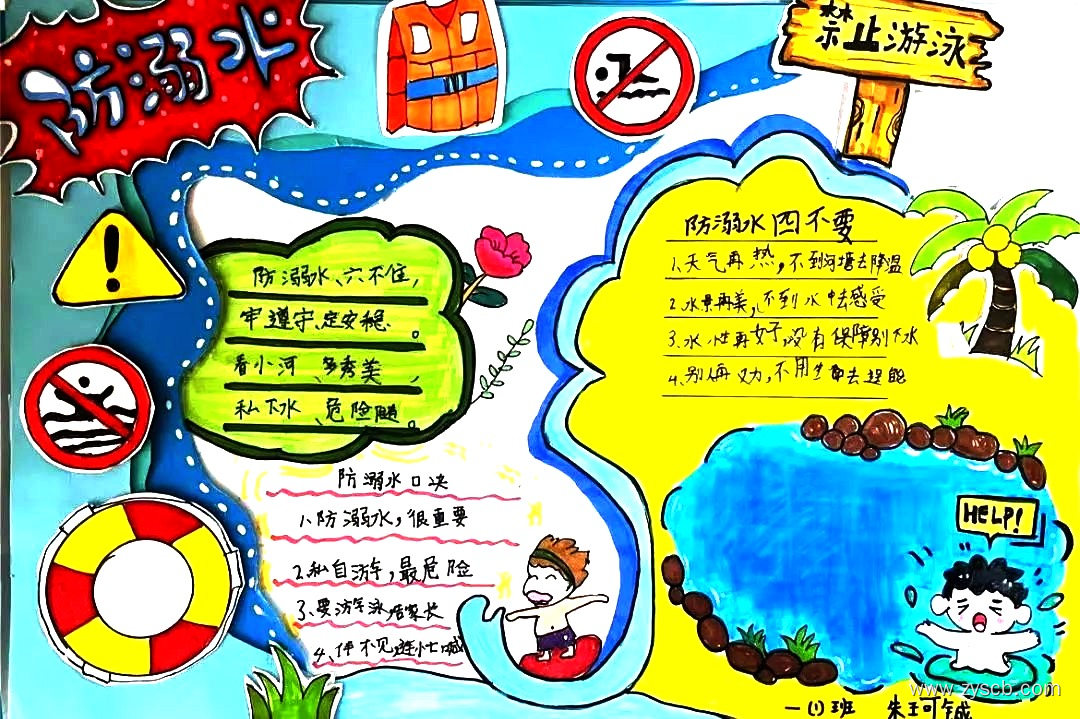 防溺水
禁止游泳
防溺水、六不住,
牢遵守、定安稳。
看小河 多秀美,
私下水、危险随。
防溺水口决
1、防溺水,很重要
2、私自游,最危险
3、要游泳
4、伴不见
防溺水四不要
1、天气再热,不到河塘去降温
2、水景再美,不到水中去感受
3、水性再好,没有保障别下水
4、别
HELP!
www.zyscb.com
一(1)班